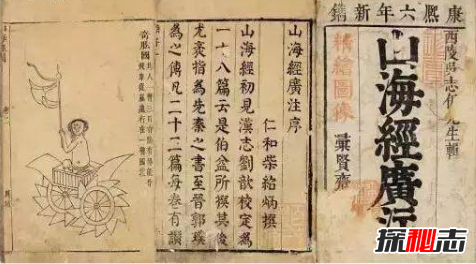 康熙六年新鐫
西陵吳志伊先生輯
山海經廣注
精繪圖像
山海經廣注序
仁和柴紹炳撰
山海經初見漢志劉歆校定為
一十八篇云是伯益所撰其後
尤袤指為先秦之書至晉郭璞
為之傳凡二十二篇每卷有讚
奇肱國
探秘志